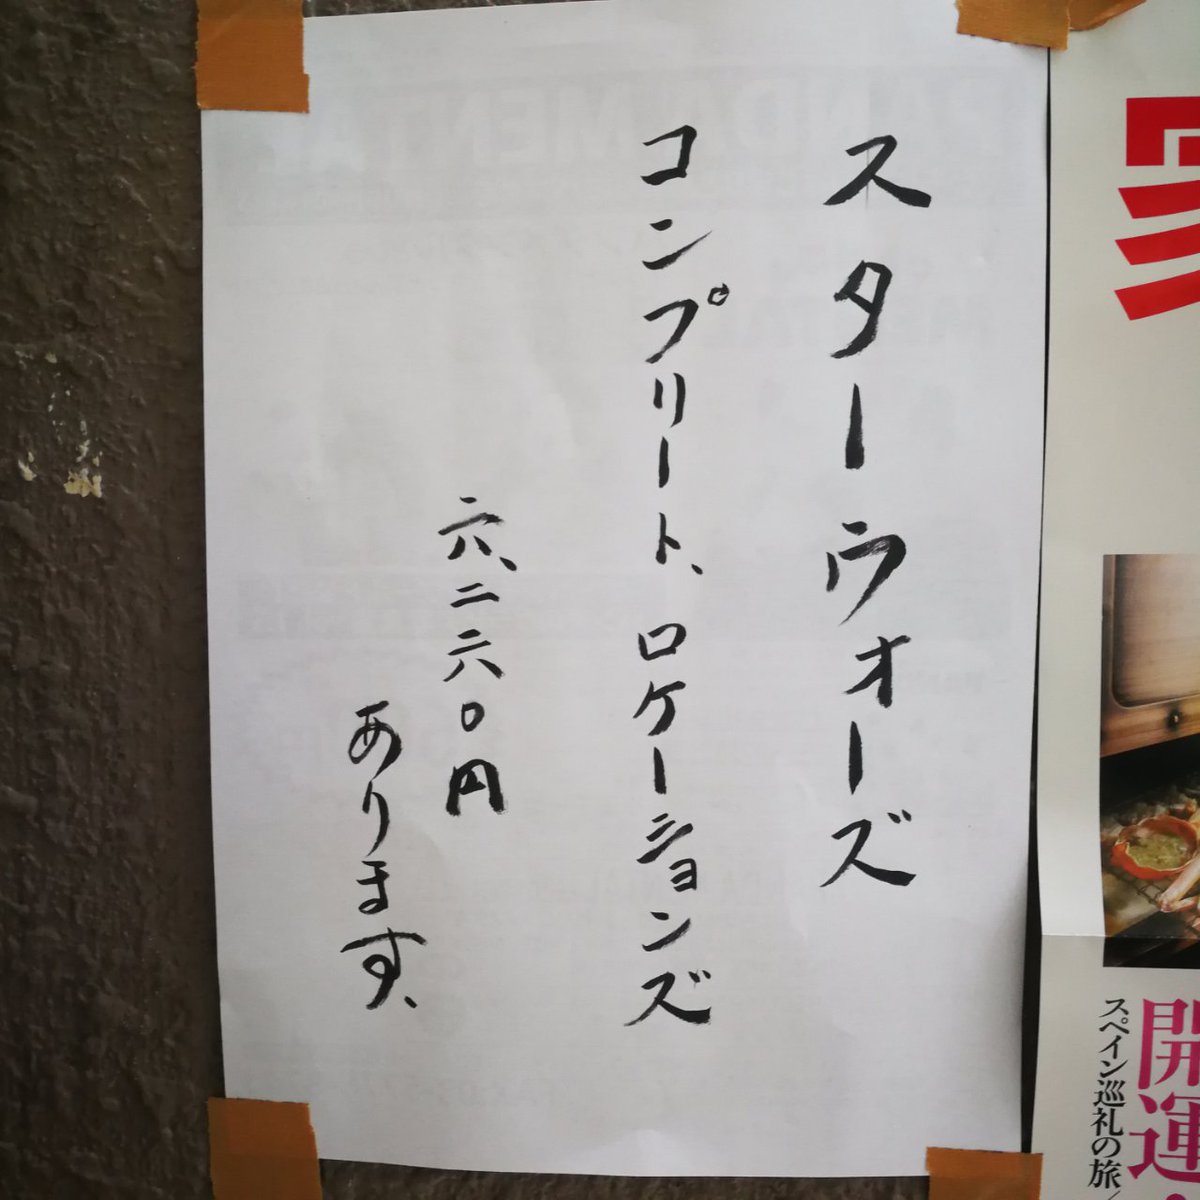 スターウォーズ
コンプリート、ロケーションズ
六、二六〇円
あります、
開運
スペイン巡礼の旅